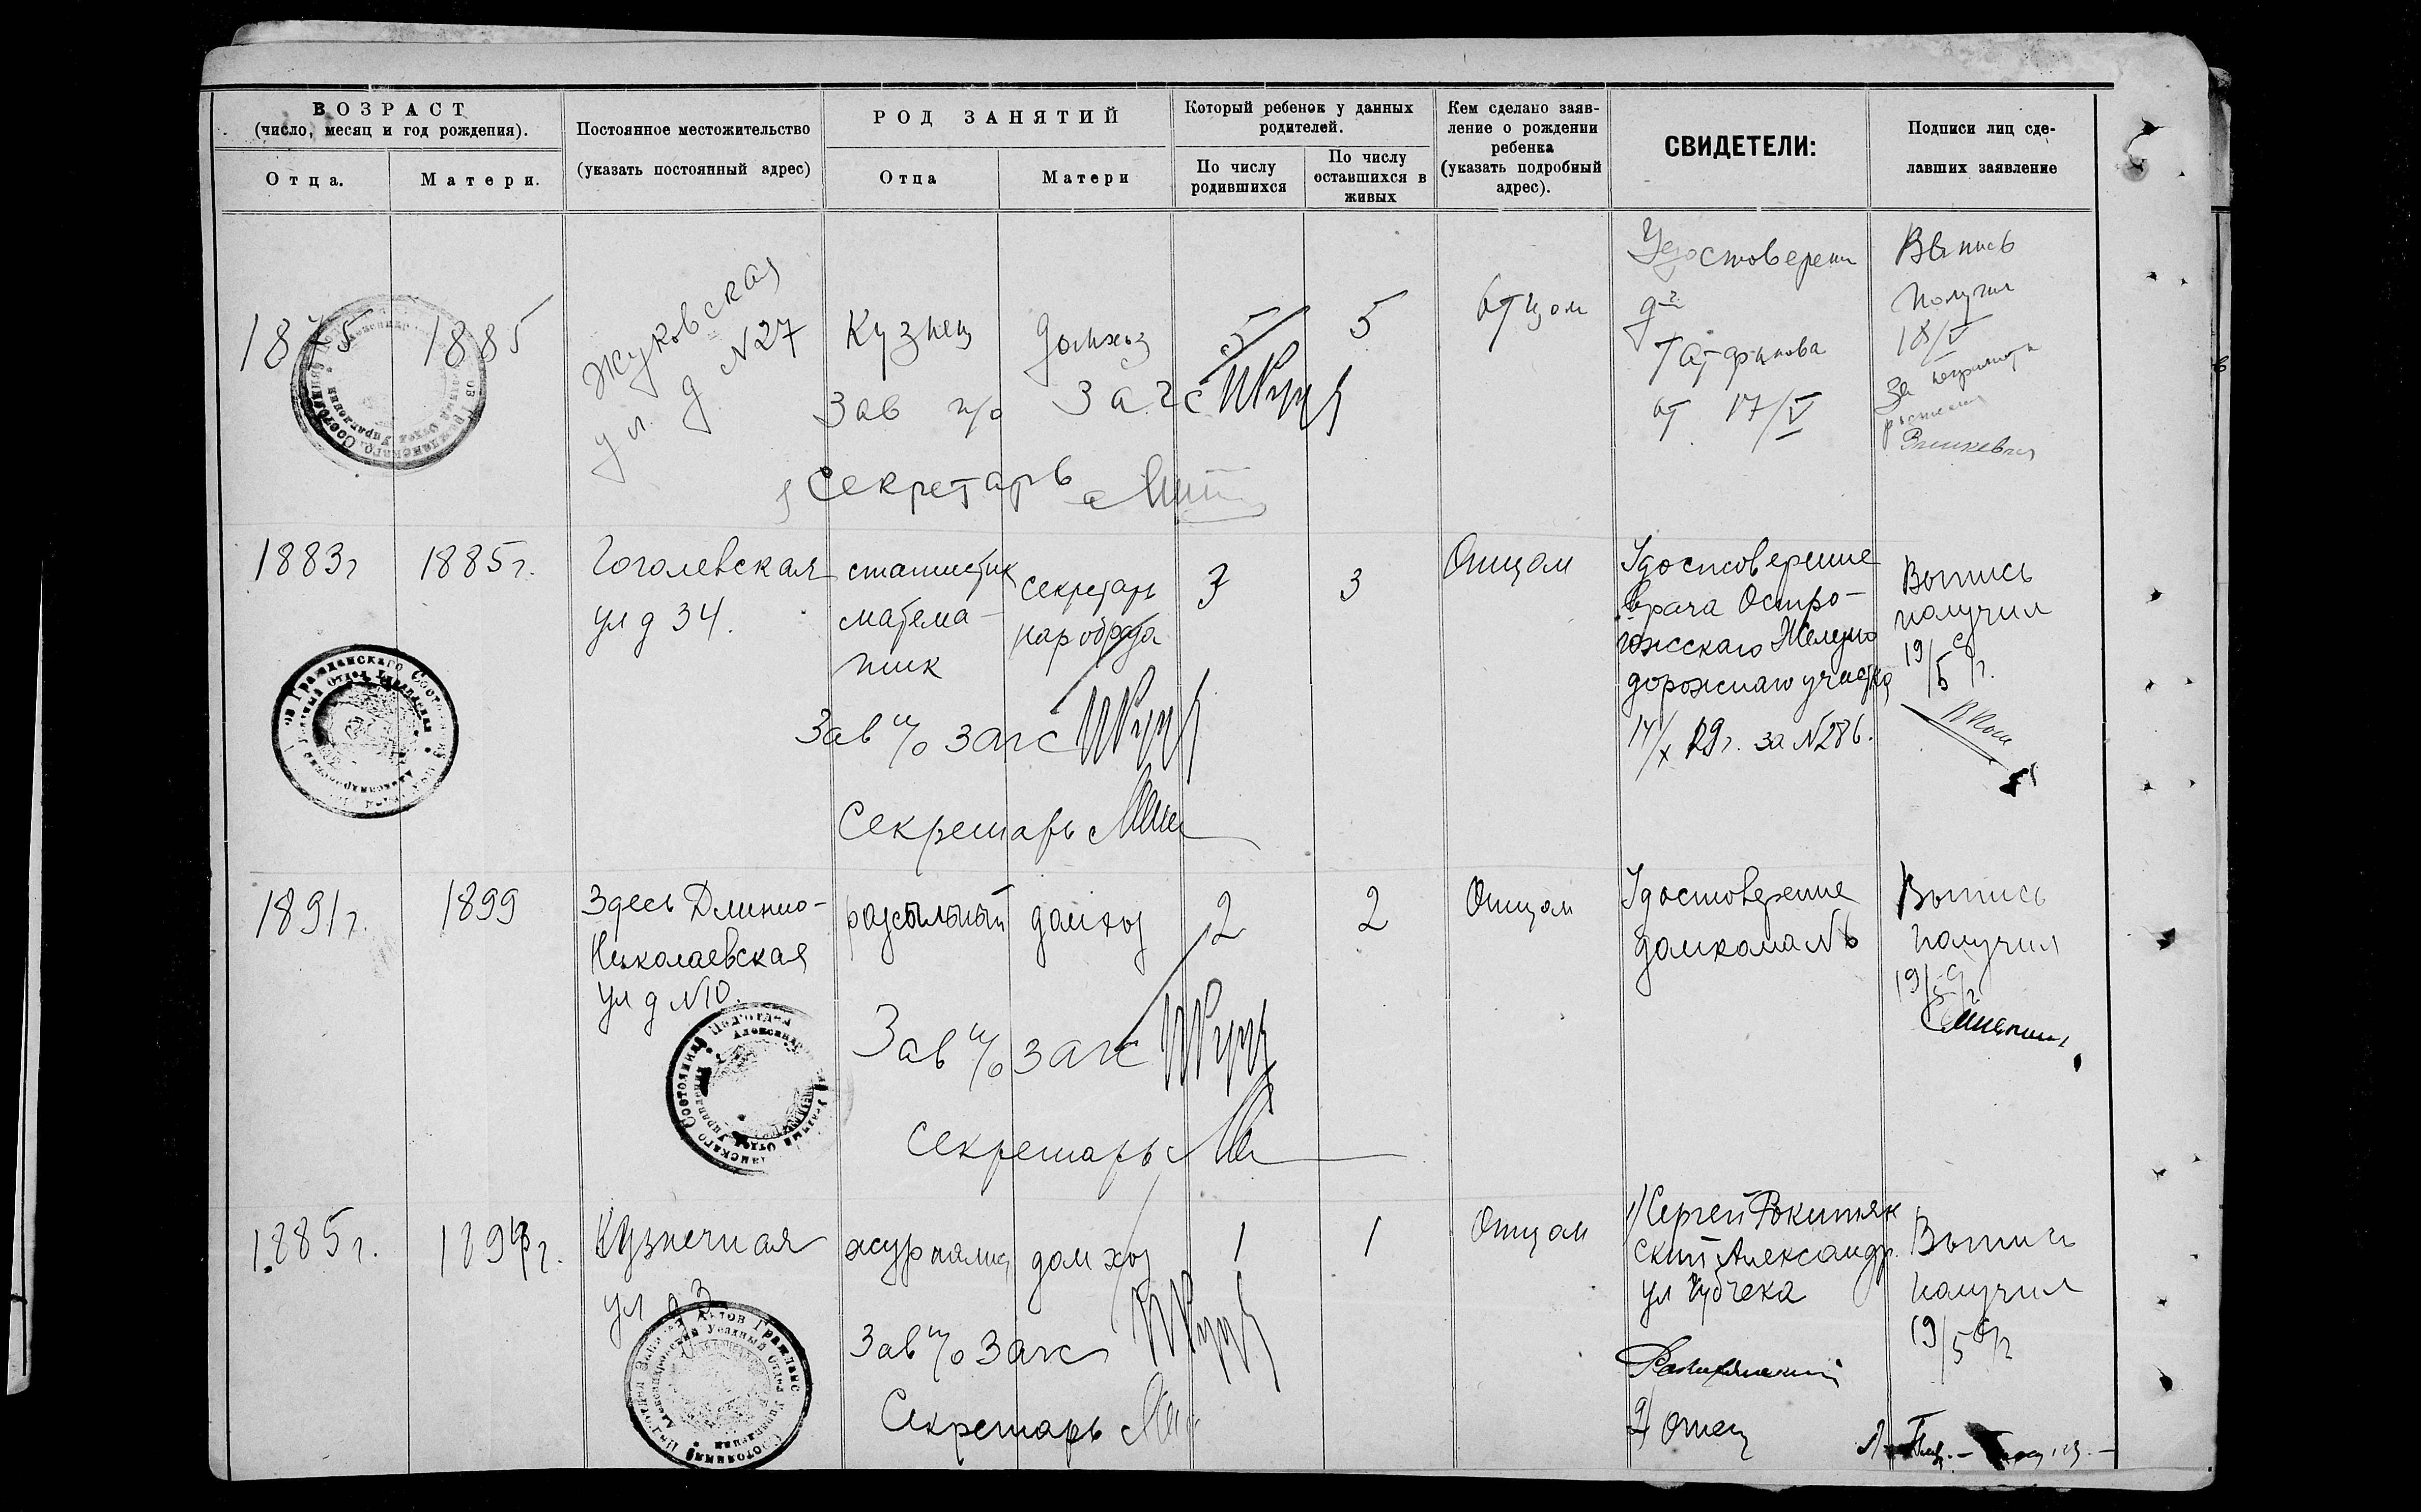 ВОЗРАСТ
(число, месяц и год рождения).
Отца.
Матери.
Постоянное местожительство
(указать постоянный адрес)
РОД ЗАНЯТИЙ
Отца
Матери
Который ребенок у данных
родителей.
По числу
родившихся
По числу
оставшихся в
живых
Кем сделано заяв-
ление о рождении
ребенка
(указать подробный
адрес).
СВИДЕТЕЛИ:
Подписи лиц сде-
лавших заявление
1875
1885
Жуковская
ул. д №27
Кузнец
домхоз
5
5
Отцом
Удостоверени
от 17/V
Выпись
получил
18/V
За
Зав п/о Загс
Секретарь
1883г
1885г.
Гоголевская
ул д 34.
статистик
матема-
тик
секретарь
наробраза
3
3
Отцом
Удостоверение
врача Остро-
гожскаго Железно
дорожнаго участка
14/X 19г. за №286.
Выпись
получил
19/5
Зав п/о загс
Секретарь
1891г.
1899
Здесь Длинно-
Николаевская
ул д №10.
разсыльный
домхоз
2
2
Отцом
Удостоверение
домкома №6
Выпись
получил
19/5
Зав п/о загс
Секретарь
1885г.
Кузнечная
ул д 3
журналист
дом хоз
1
1
Отцом
1) Сергей Рокитян
ский Александр.
ул Губчека
2) Отец
Выпись
получил
19/5
Зав п/о Загс
Секретарь